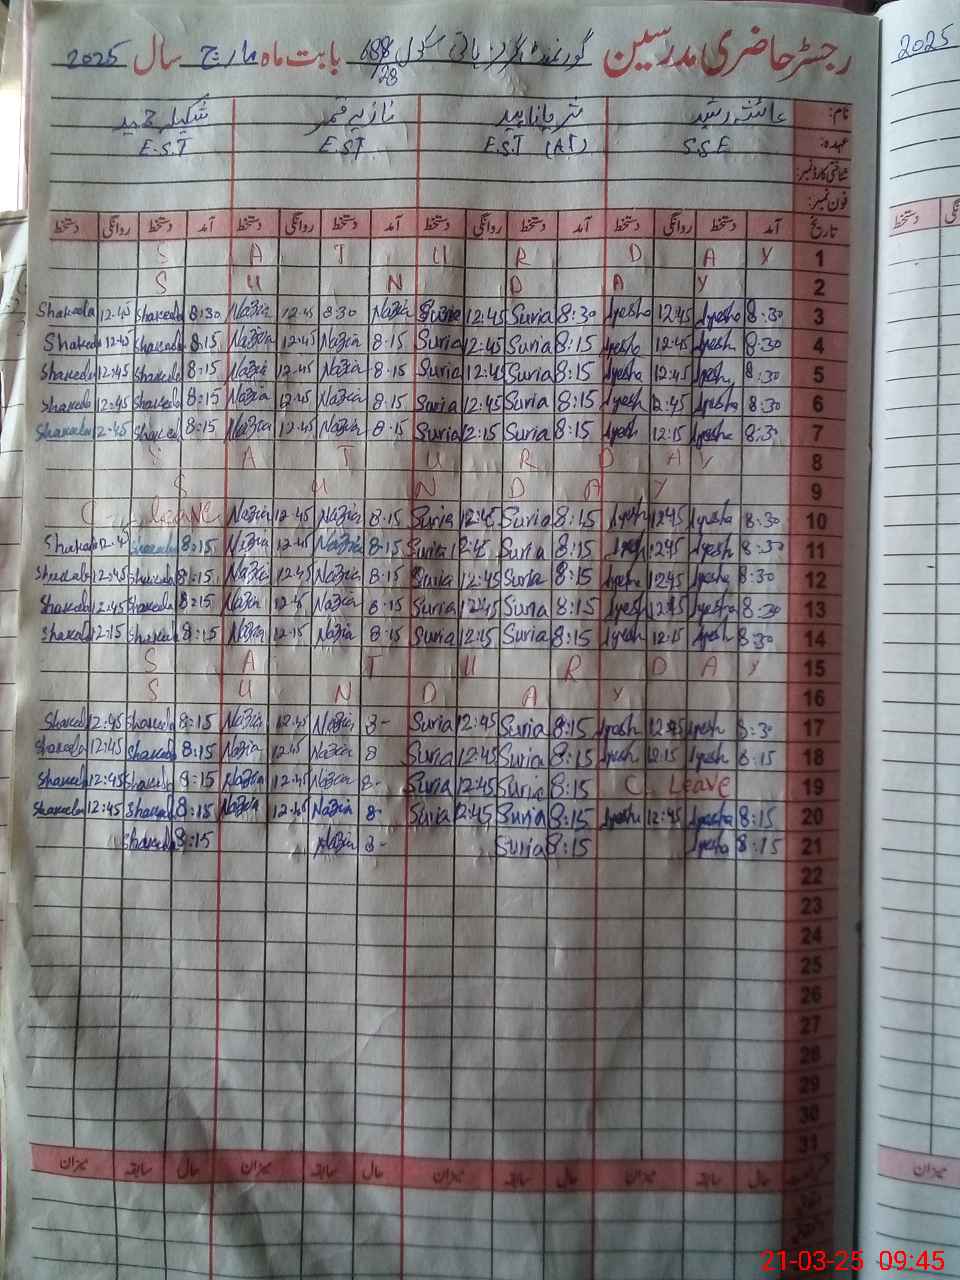 رجسٹر حاضری مدرسین گورنمنٹ گرلز ہائی سکول 688/28 بابت ماہ مارچ سال 2025
2025
نام: عائشہ رشید ثریا ناہید نازیہ قمر شکیلہ حمید
عہدہ: S.S.E E.S.T (AT) E.S.T E.S.T
شناختی کارڈ نمبر:
فون نمبر:
تاریخ آمد دستخط روانگی دستخط آمد دستخط روانگی دستخط آمد دستخط روانگی دستخط آمد دستخط روانگی دستخط
دستخط
S A T U R D A Y 1
S U N D A Y 2
Shakeela 12:45 Shakeela 8:30 Nazia 12:45 8:30 Nazia Suria 12:45 Suria 8:30 Ayesha 12:45 Ayesha 8:30 3
Shakeela 12:45 Shakeela 8:15 Nazia 12:45 Nazia 8:15 Suria 12:45 Suria 8:15 Ayesha 12:45 Ayesha 8:30 4
Shakeela 12:45 Shakeela 8:15 Nazia 12:45 Nazia 8:15 Suria 12:45 Suria 8:15 Ayesha 12:45 Ayesha 8:30 5
Shakeela 12:45 Shakeela 8:15 Nazia 12:45 Nazia 8:15 Suria 12:45 Suria 8:15 Ayesha 12:45 Ayesha 8:30 6
Shakeela 12:45 Shakeela 8:15 Nazia 12:45 Nazia 8:15 Suria 12:15 Suria 8:15 Ayesha 12:15 Ayesha 8:30 7
S A T U R D A Y 8
S U N D A Y 9
C leave Nazia 12:45 Nazia 8:15 Suria 12:45 Suria 8:15 Ayesha 12:45 Ayesha 8:30 10
Shakeela 12:4 Shakeela 8:15 Nazia 12:45 Nazia 8:15 Suria 12:45 Suria 8:15 Ayesha 12:45 Ayesha 8:30 11
Shakeela 12:45 Shakeela 8:15 Nazia 12:45 Nazia 8:15 Suria 12:45 Suria 8:15 Ayesha 12:45 Ayesha 8:30 12
Shakeela 12:45 Shakeela 8:15 Nazia 12:45 Nazia 8:15 Suria 12:45 Suria 8:15 Ayesha 12:45 Ayesha 8:30 13
Shakeela 12:15 Shakeela 8:15 Nazia 12:15 Nazia 8:15 Suria 12:15 Suria 8:15 Ayesha 12:15 Ayesha 8:30 14
S A T U R D A Y 15
S U N D A Y 16
Shakeela 12:45 Shakeela 8:15 Nazia 12:45 Nazia 8- Suria 12:45 Suria 8:15 Ayesha 12:45 Ayesha 8:30 17
Shakeela 12:45 Shakeela 8:15 Nazia 12:45 Nazia 8 Suria 12:45 Suria 8:15 Ayesha 12:15 Ayesha 8:15 18
Shakeela 12:45 Shakeela 8:15 Nazia 12:45 Nazia 8- Suria 12:45 Suria 8:15 C. Leave 19
Shakeela 12:45 Shakeela 8:15 Nazia 12:45 Nazia 8- Suria 12:45 Suria 8:15 Ayesha 12:45 Ayesha 8:15 20
Shakeela 8:15 Nazia 8- Suria 8:15 Ayesha 8:15 21
22
23
24
25
26
27
28
29
30
31
حال سابقہ میزان حال سابقہ میزان حال سابقہ میزان حال سابقہ میزان
میزان
21-03-25 09:45